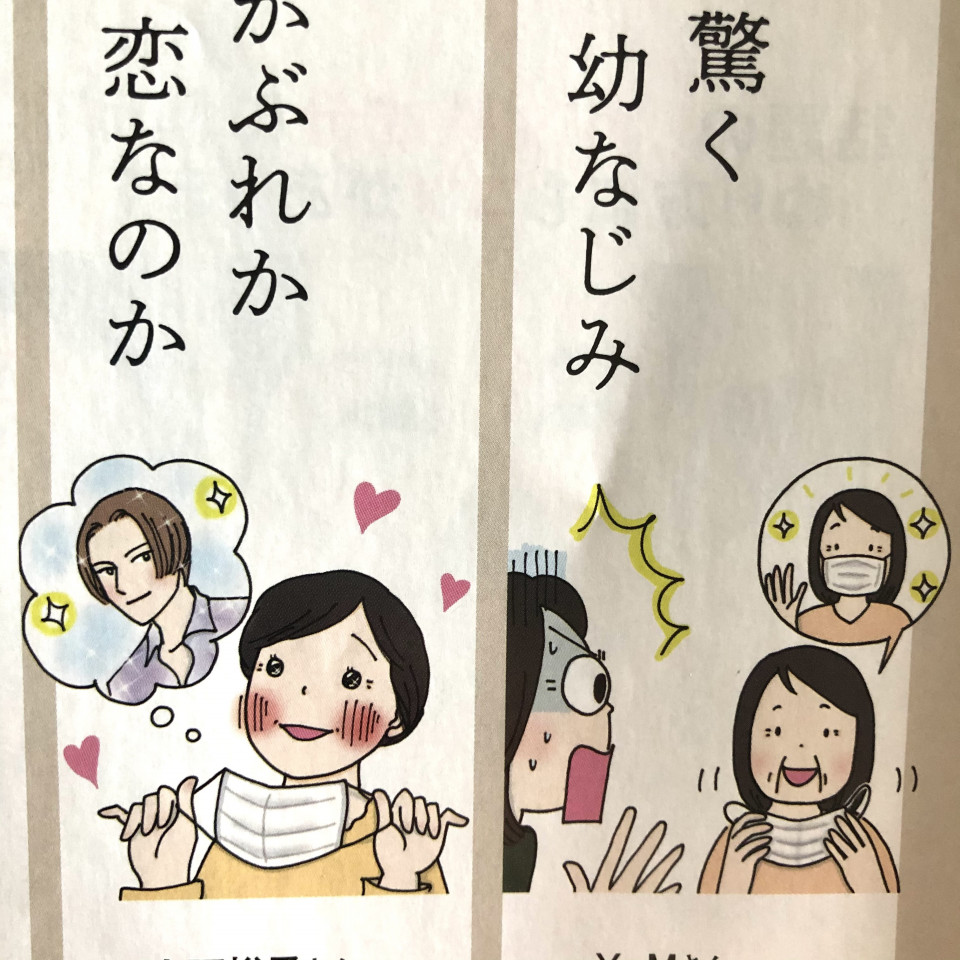 驚く
幼なじみ
かぶれか
恋なのか